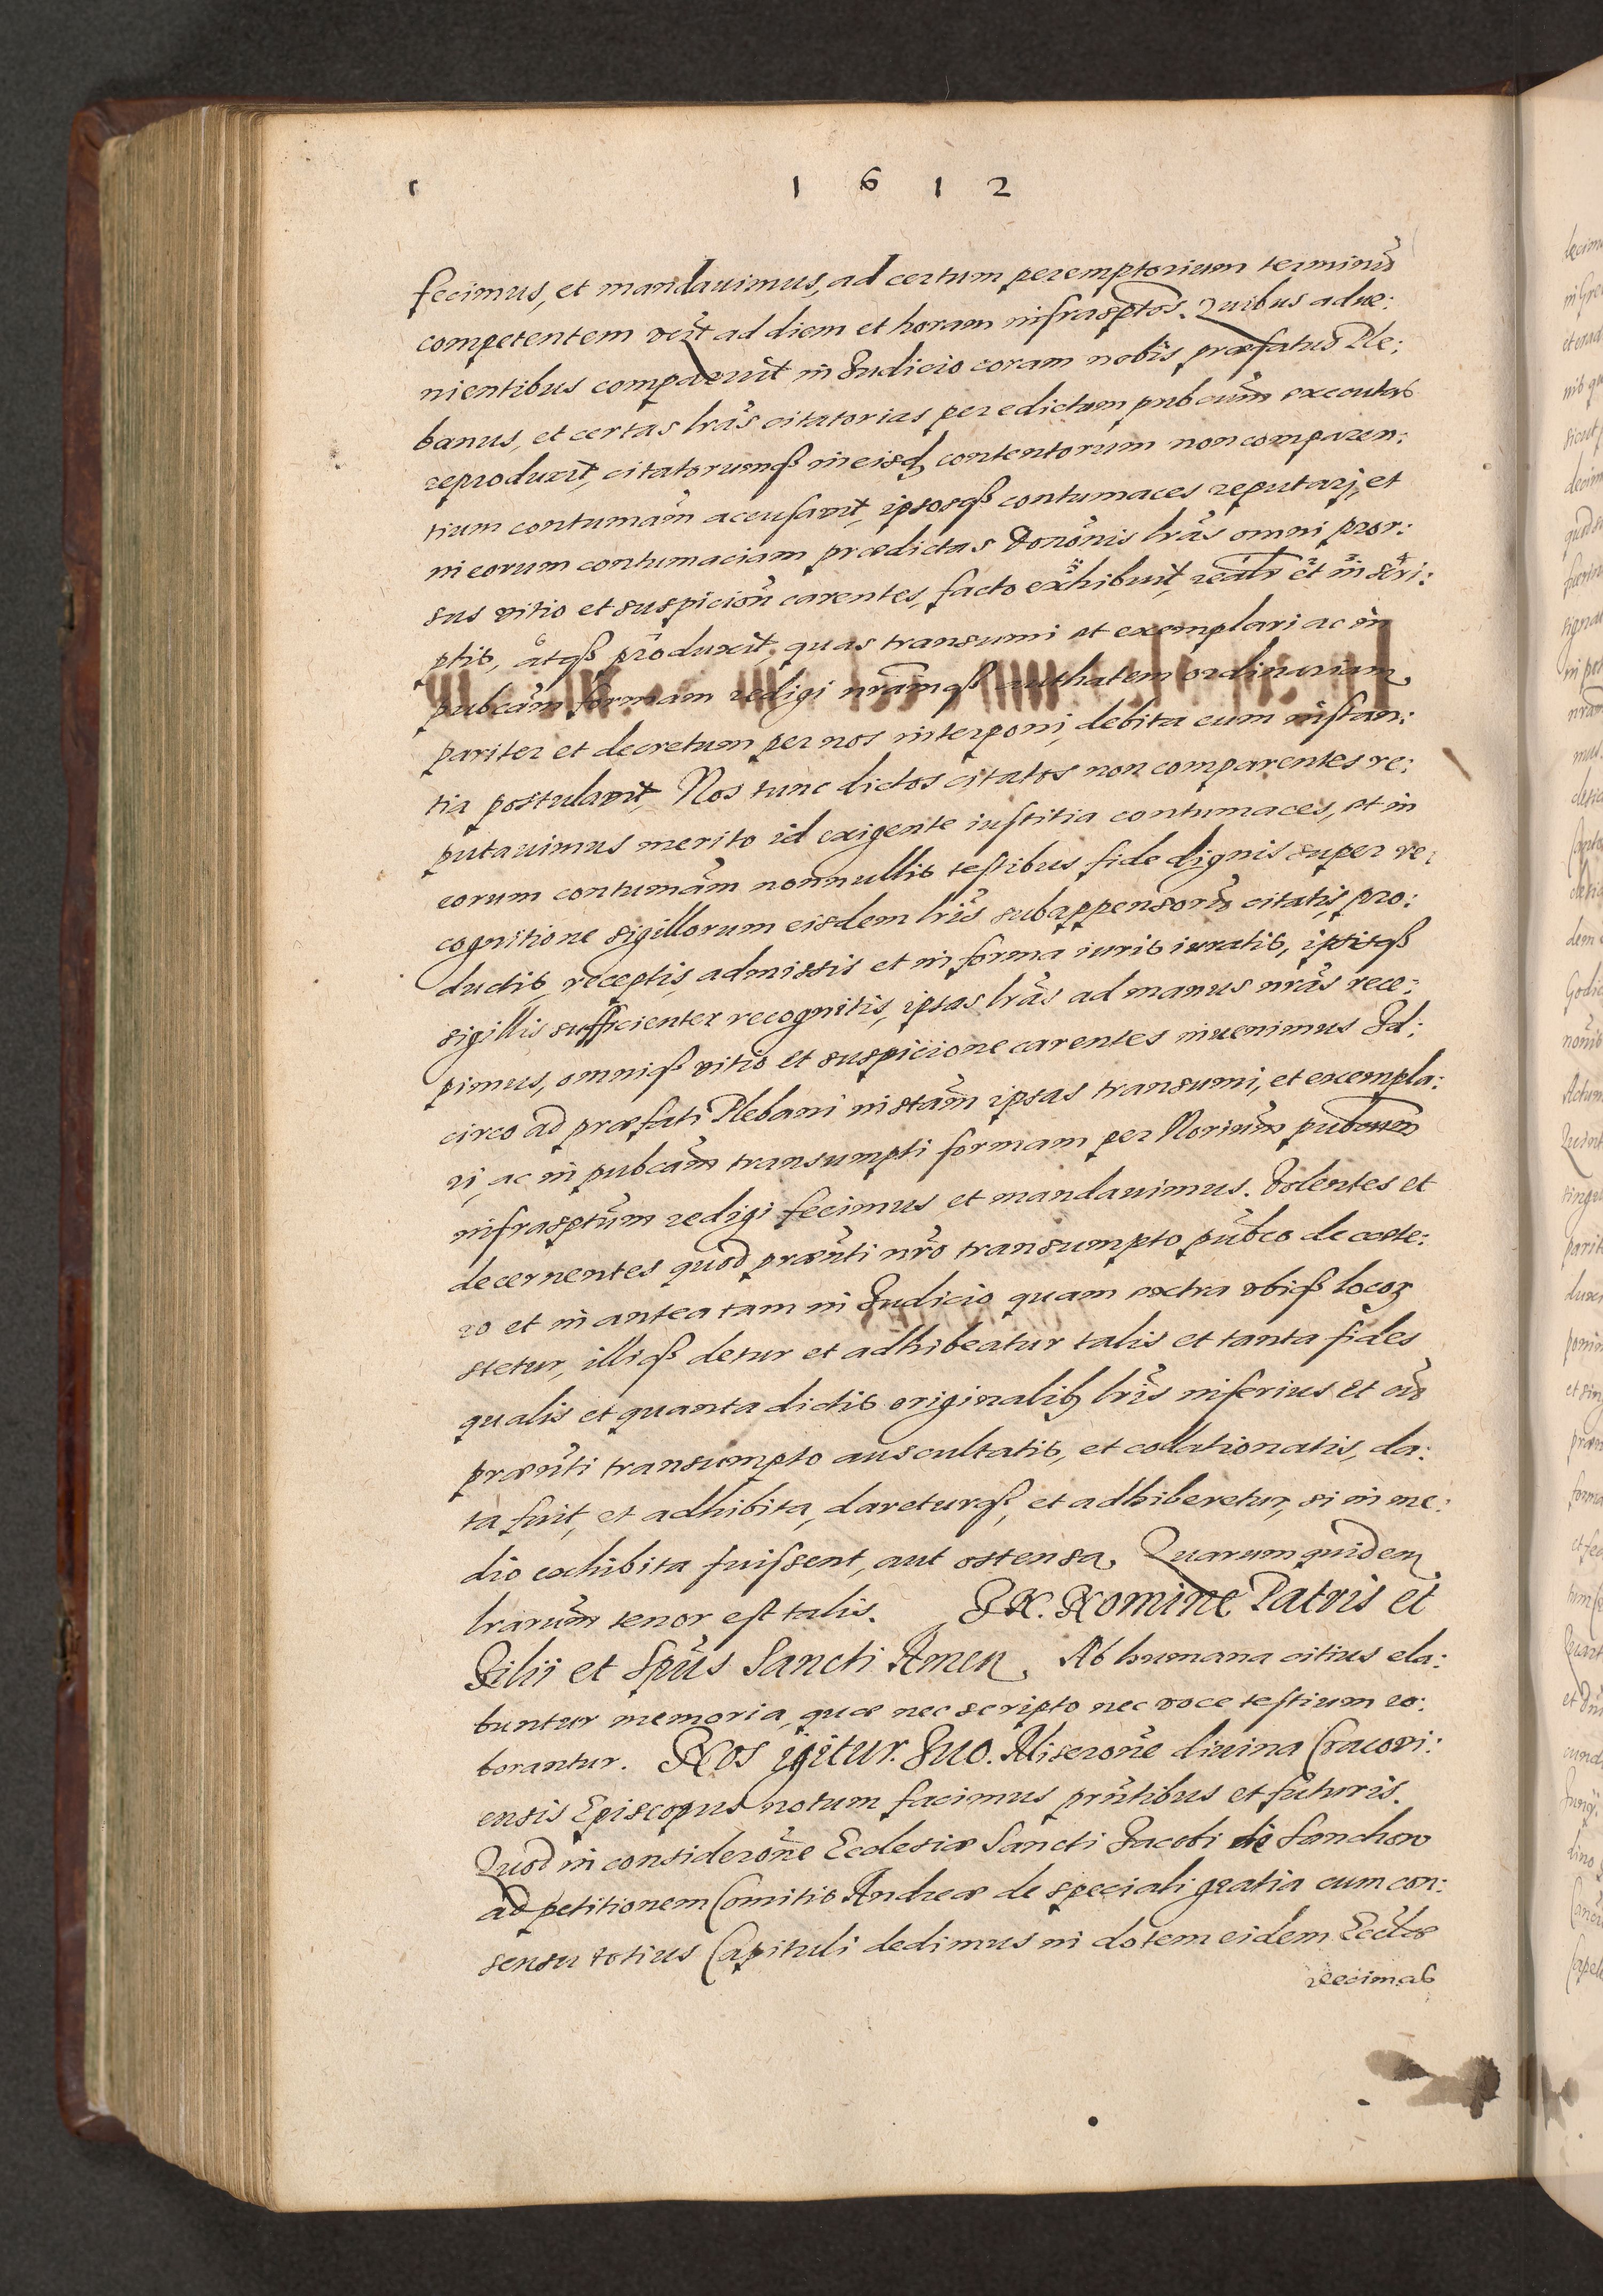 1 6 1 2
fecimus, et mandauimus, ad certum peremptorium terminũ
competentem vc̃z̃t ad diem et horam infrasp̃tos. Quibus adue:
nientibus comparuit in Judicio coram nobis præfatus Ple:
banus, et certas lrãs citatorias per edictum pubcũm executas
reproduxit, citatorumqꝫ in eisdꝫ contentorum non comparen:
tium contumãm accusauit, ipsosqꝫ contumaces reputarj, et
in eorum contumaciam prædictas Donõnis lrãs omni pror:
sus vitio et suspiciõn carentes, facto exhibuit, realr̃ et in scri:
ptis, atqꝫ produxit, quas transumi et exemplari ac in
pubcãm formam redigi nrãmqꝫ authatem ordinariam
pariter et decretum per nos interponi, debita cum instan:
tia postulauit, Nos tunc dictos citatos non comparentes re:
putauimus merito id exigente iustitia contumaces, et in
eorum contumãm nonnullis testibus fide dignis super re:
cognitione sigillorum eisdem lrĩs subappensorũ citatis, pro:
ductis, receptis, admissis et in forma iuris iuratis, ipsisqꝫ
sigillis sufficienter recognitis, ipsas lrãs ad manus nrãs rece:
pimus, omniqꝫ vitio et suspicione carentes inuenimus Id:
circo ad præfati Plebani instãm ipsas transumi, et exempla:
ri, ac in pubcãm transumpti formam per Noriũm pubcum
infrasptũm redigi fecimus et mandauimus. Volentes et
decernentes quod præñti nrõ transumpto pũbco de cæte:
ro et in antea tam in Judicio quam extra vbiqꝫ locoꝝ
stetur, illiqꝫ detur et adhibeatur talis et tanta fides
qualis et quanta dictis originalibꝫ lrĩs inferius et cũ
præñti transumpto auscultatis, et collationatis, da:
ta fuit, et adhibita, dareturqꝫ, et adhiberetur, si in me:
dio exhibita fuissent, aut ostensa. Quarum quidem
lrarũm tenor est talis. IN. Nomine Patris et
Filii et Spũs Sancti Amen. Ab humana citius ela:
buntur memoria, quæ nec scripto nec voce testium ro:
borantur. Nos igitur. Iuo. Miserõne diuina Cracoui:
ensis Episcopus notum facimus prñtibus et futuris.
Quod in considerõne Ecclesiæ Sancti Jacobi de Sanchow
ad petitionem Comitis Andreæ de speciali gratia cum con:
sensu totius Capituli dedimus in dotem eidem Eccl̃æ
decimas